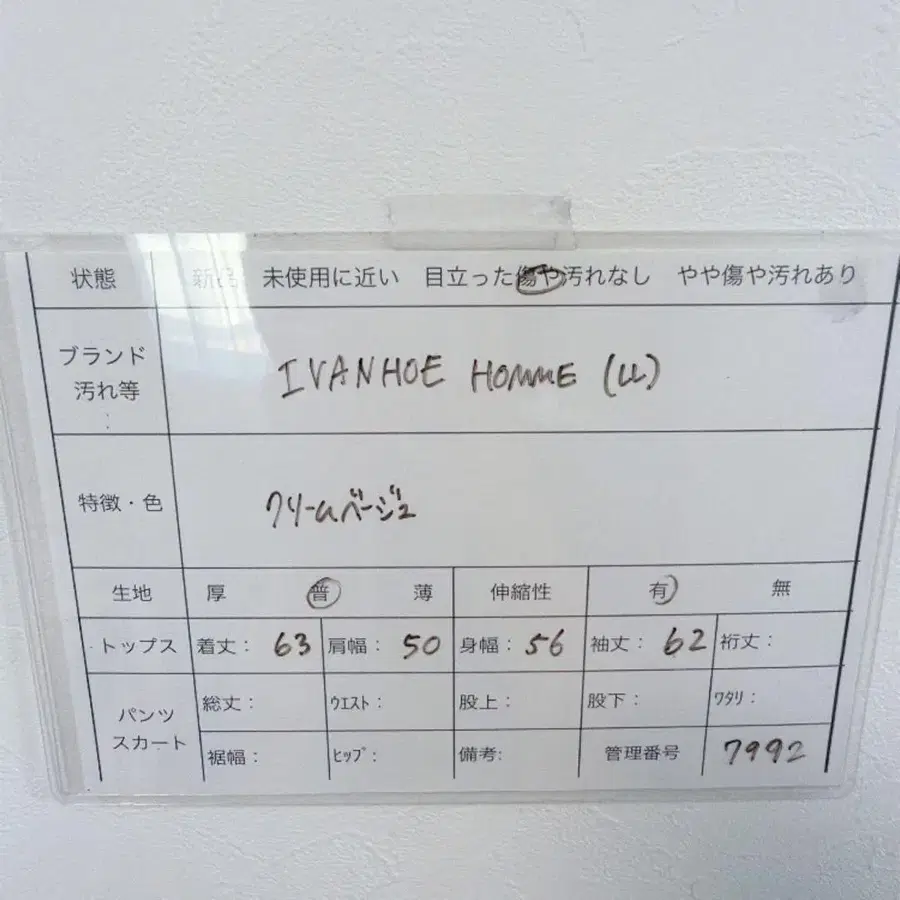 状態 新品 未使用に近い 目立った傷や汚れなし やや傷や汚れあり
ブランド
汚れ等
:
IVANHOE HOMME (LL)
特徴・色 クリームベージュ
生地 厚 普 薄 伸縮性 有 無
トップス 着丈: 63 肩幅: 50 身幅: 56 袖丈: 62 裄丈:
パンツ
スカート
総丈: ウエスト: 股上: 股下: ワタリ:
裾幅: ヒップ: 備考: 管理番号 7992